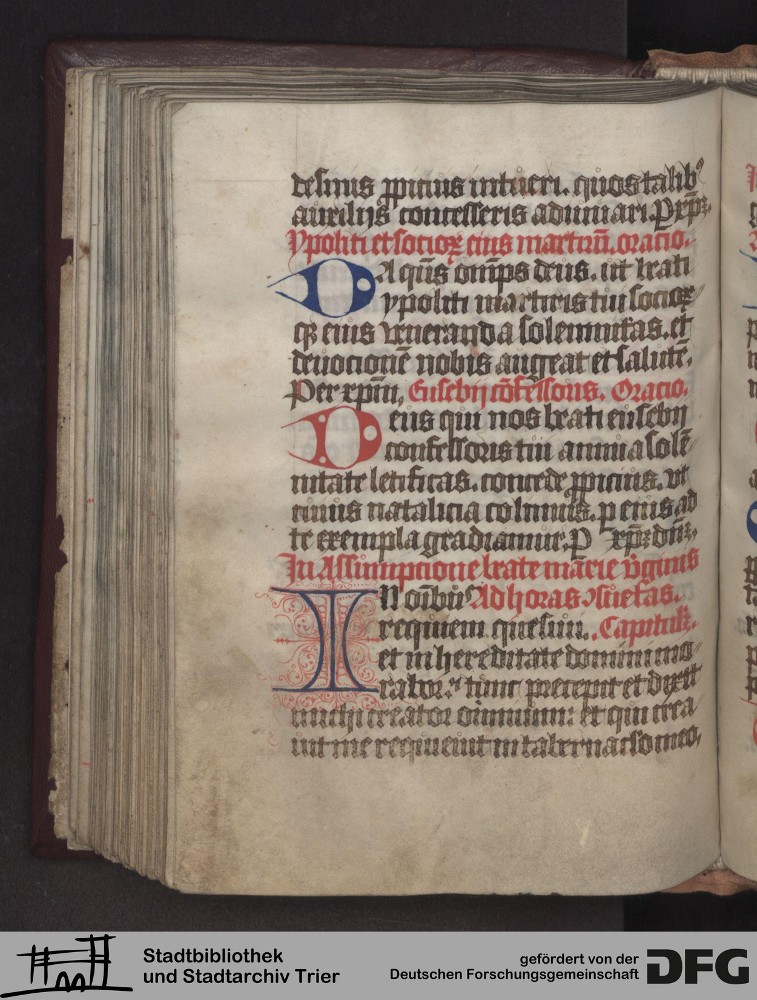 desinis ꝓpicius intueri. quos talibꝰ
auxilijs concesseris adiuuari. P xp̄m.
Ypoliti et socioꝝ eius martirū. oracio.
DA q̄s om̄ps deus. ut beati
ypoliti martiris tui socioꝝ
qꝫ eius veneranda solemnitas. et
deuocionē nobis augeat et salutē.
Per xp̄m, Eusebij cōfessoris. Oracio.
Deus qui nos beati eusebij
confessoris tui annua solē
nitate letificas. concede ꝓpicius. vt
cuius natalicia colimus. ꝑ eius ad
te exempla gradiamur. P xp̄m dn̄m.
In Assumpcione beate marie v̄ginis
IN oībus Ad horas ꝯsuetas.
requiem quesiui. Capitulū.
et in hereditate domini mo
rabor. tunc precepit et dixit
michi creator omnium: et qui crea
uit me requieuit in tabernaculo meo,
Stadtbibliothek
und Stadtarchiv Trier
gefördert von der
Deutschen Forschungsgemeinschaft
DFG